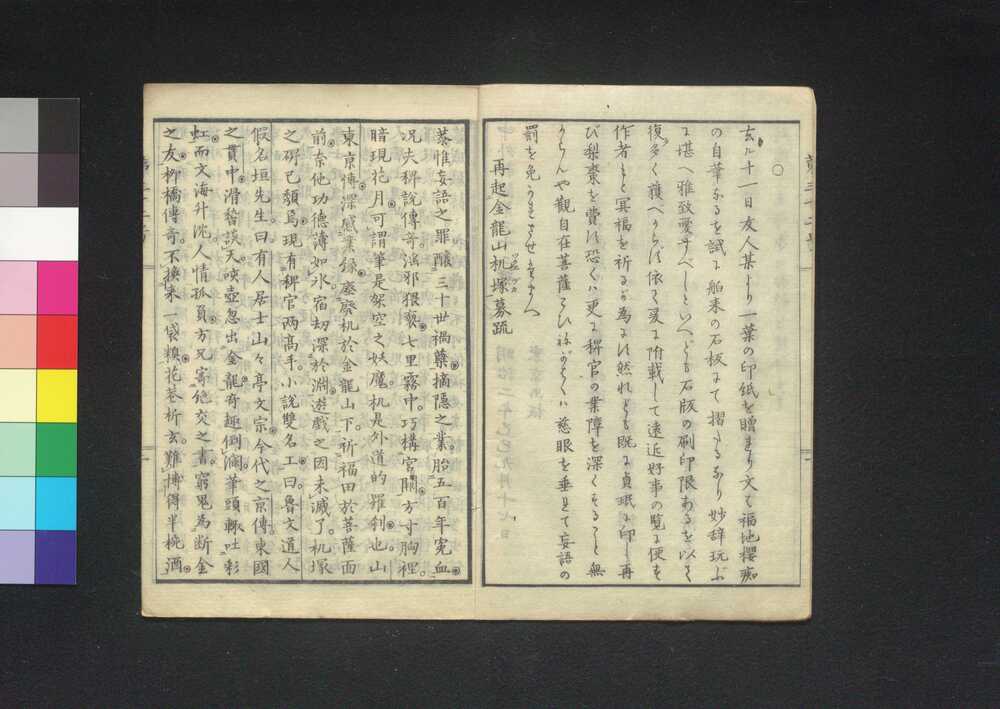 ○
玄ル十一日友人某より一葉の印紙を贈まり文は福地櫻痴
の自筆なるを試に舶来の石板にて摺たるなり妙辞玩ぶ
に堪へ雅致愛すべしといへども石版の刷印限あるを以て
復多く獲べからず依て爰に附載して遠近好事の覧に便す
作者もと冥福を祈るが為にす然れども既に貞珉に印し再
び梨棗を費す恐くは更に稗官の業障を深くそること無
からんや觀自在菩薩こひねがくは慈眼を垂れて妄語の
罰を免かれさせたまへ
再起金龍山机塚募疏
恭惟妄語之罪釀三十世禍藥摘隱之業胎五百年寃血
况夫稗說傳奇滛邪猥褻七里霧中巧構宮關方寸胸裡
暗現花月可謂筆是架空之妖魔机是外道的羅刹也山
東京傳深感業緣塵廢机於金龍山下祈福田於菩薩面
前奈他功德薄如氷宿刧深於淵遊戯之因未滅了机塚
之碑已頽焉現有稗官两高手小說雙名工曰魯文道人
假名垣先生曰有人居士山々亭文宗今代之京傳東國
之貫中滑稽談天唾壺忽出金龍奇趣倒瀾筆頭輙吐彩
虹而文海升沈人情孤負方兄寄絶交之書窮鬼為断金
之友柳橋傳奇不換来一袋糗花巷析玄難博得半椀酒